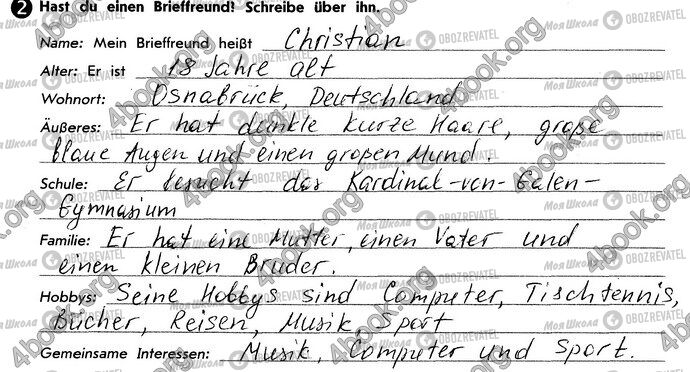 2 Hast du einen Brieffreund? Schreibe über ihn.
Name: Mein Brieffreund heißt Christian
Alter: Er ist 18 Jahre alt
Wohnort: Osnabrück, Deutschland
Äußeres: Er hat dunkle kurze Haare, große
blaue Augen und einen großen Mund.
Schule: Er besucht das Kardinal-von-Galen-
Gymnasium
Familie: Er hat eine Mutter, einen Vater und
einen kleinen Bruder.
Hobbys: Seine Hobbys sind Computer, Tischtennis,
Bücher, Reisen, Musik Sport
Gemeinsame Interessen: Musik, Computer und Sport.